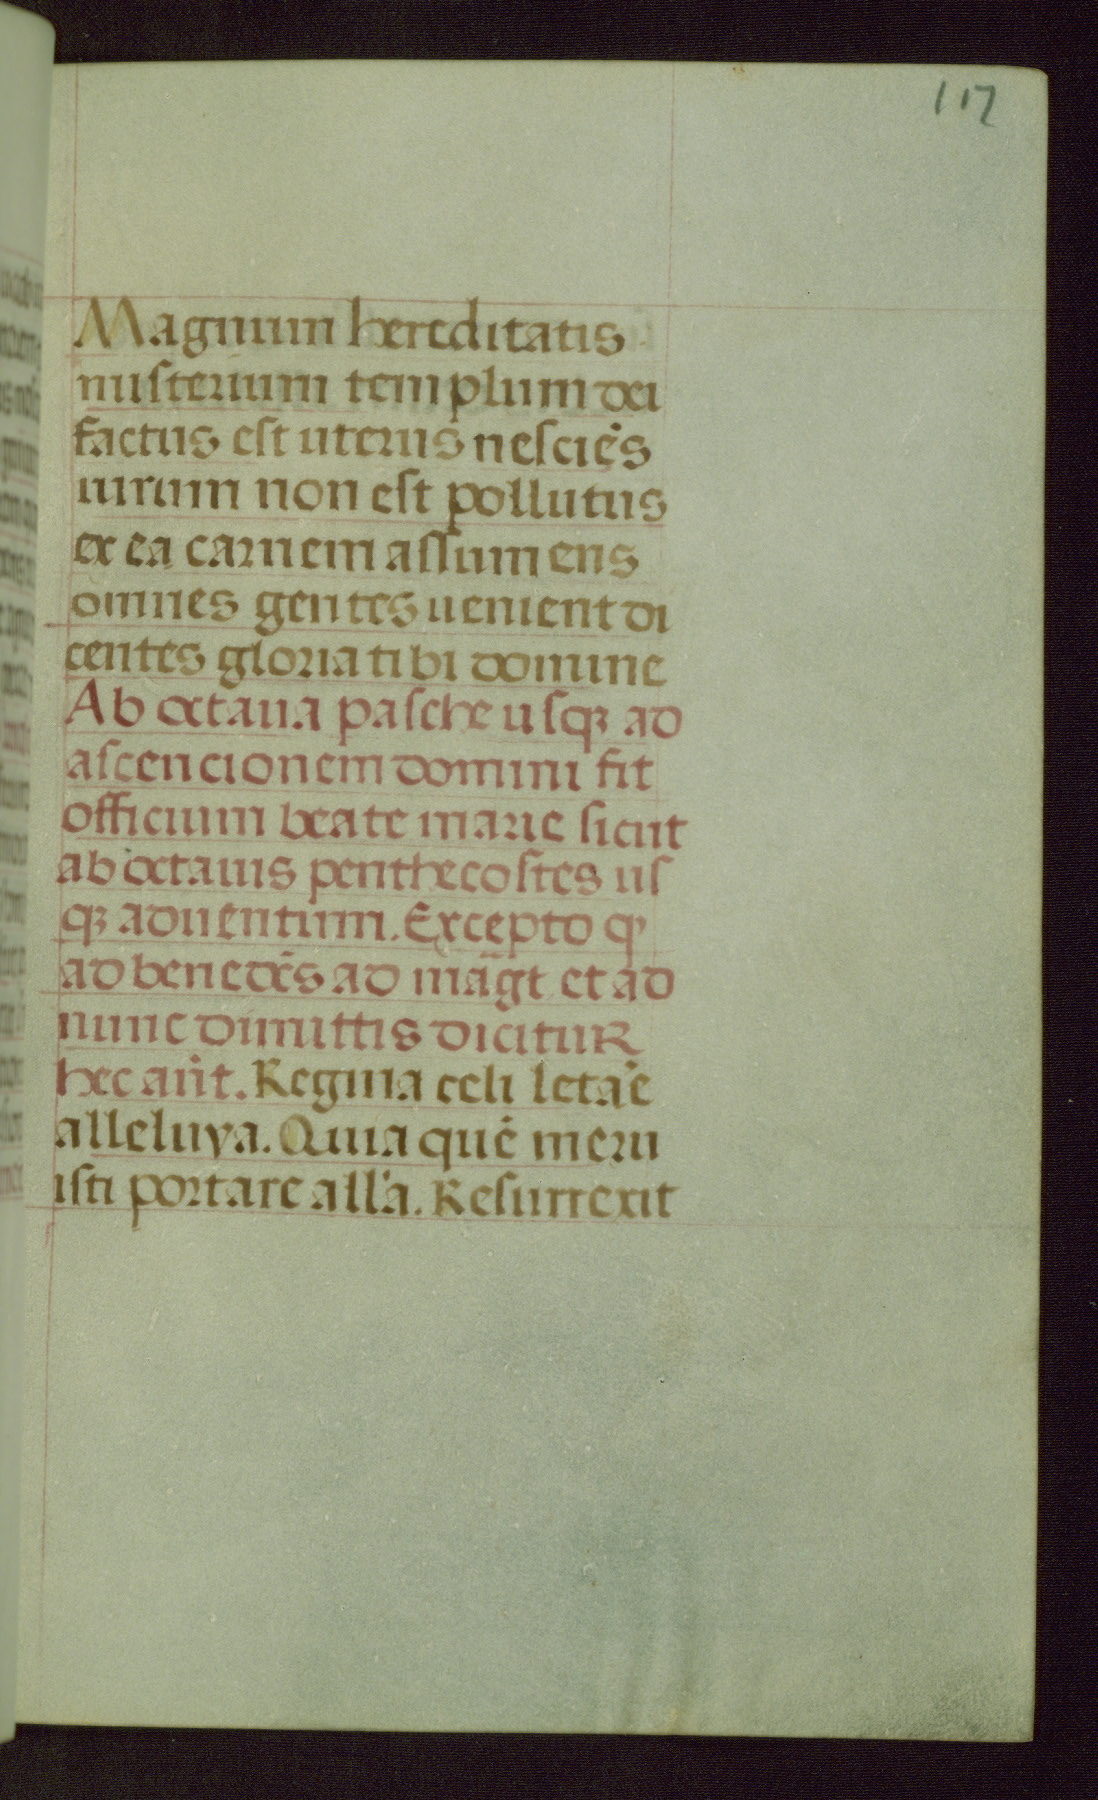 117
Magnum hereditatis
misterium templum dei
factus est uterus nesciēs
uirum non est pollutus
ex ea carnem assumens
omnes gentes uenient di
centes gloria tibi domine
Ab octaua pasche usqꝫ ad
ascencionem domini fit
officium beate marie sicut
ab octauis penthecostes us
qꝫ aduentum. Excepto qʼ
ad benedc̄s ad māgt et ad
nunc dimittis dicitur
hec an̄t. Regina celi letaʼe
alleluya. Quia quē meru
isti portare all'a. Resurrexit